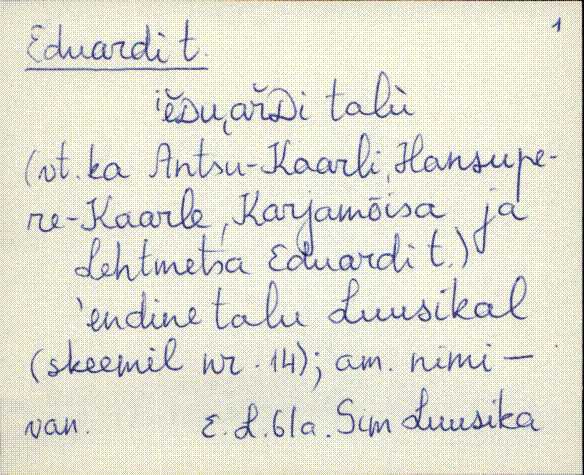 1
Eduardi t.
ĕᴅu̯ařᴅi talù
(vt. ka Antsu-Kaarli, Hansupe-
re-Kaarle, Karjamõisa ja
Lehtmetsa Eduardi t.)
'endine talu Luusikal
(skeemil nr. 14); am. nimi —
van. E. L. 61a. Sim Luusika